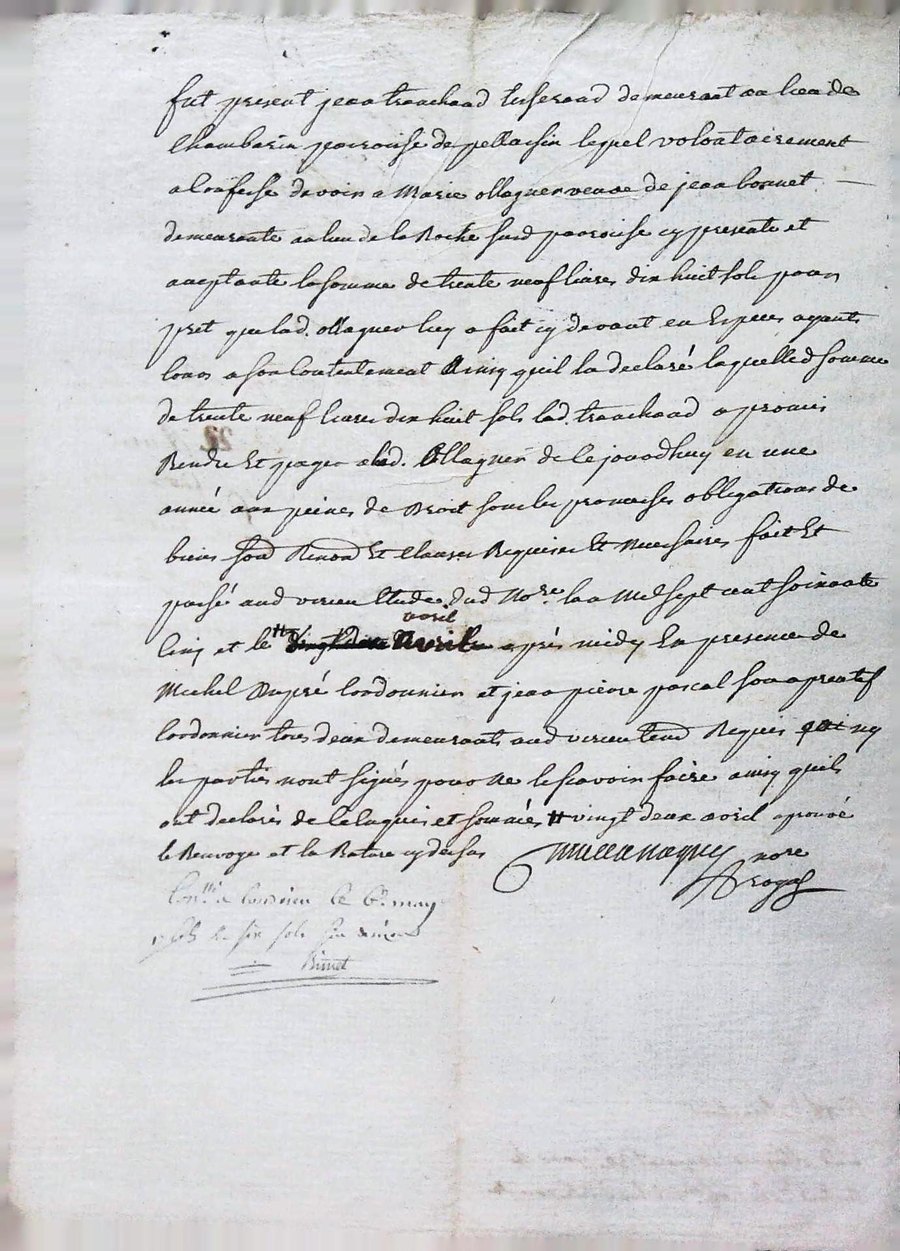 fut present jean tranchand tisserand demeurant au lieu de
Chambarin parroisse de pellassin lequel volontairement
a Confesse devoir a Marie ollagner veuve de jean bonnet
demeurante au lieu de la Roche susd parroisse cy presente et
acceptante la somme de trente neuf livres dix huit sols pour
pret que lad. ollagner luy a fait cy devant en Especes ayants
Cours a son Contentement Ainsy quil la declaré laquelle d somme
de trente neuf livres dix huit sols led. tranchand a promis
Rendre Et payer a lad. Ollagner de ce jourdhuy en une
année aux peines de Droit sous les promesses obligations de
biens Renon Et Clauses Requises Et Necessaires fait Et
passé aud virieu Etude dud Nore. lan Mil sept cent soixante
Cinq et le # vingt deux Avril avril après midy En presence de
Michel Dupré Cordonnier et jean pierre pascal son aprentif
Cordonnier tous deux demeurants aud virieu Requis
les parties nont signés pour ne le scavoir faire ainsy quils
ont declarés de Ce Enquis et sommés # vingt deux avril aprouvé
le Renvoye et la Rature cy dessus
nore
royal
Con.lle a le 6e may
six sols